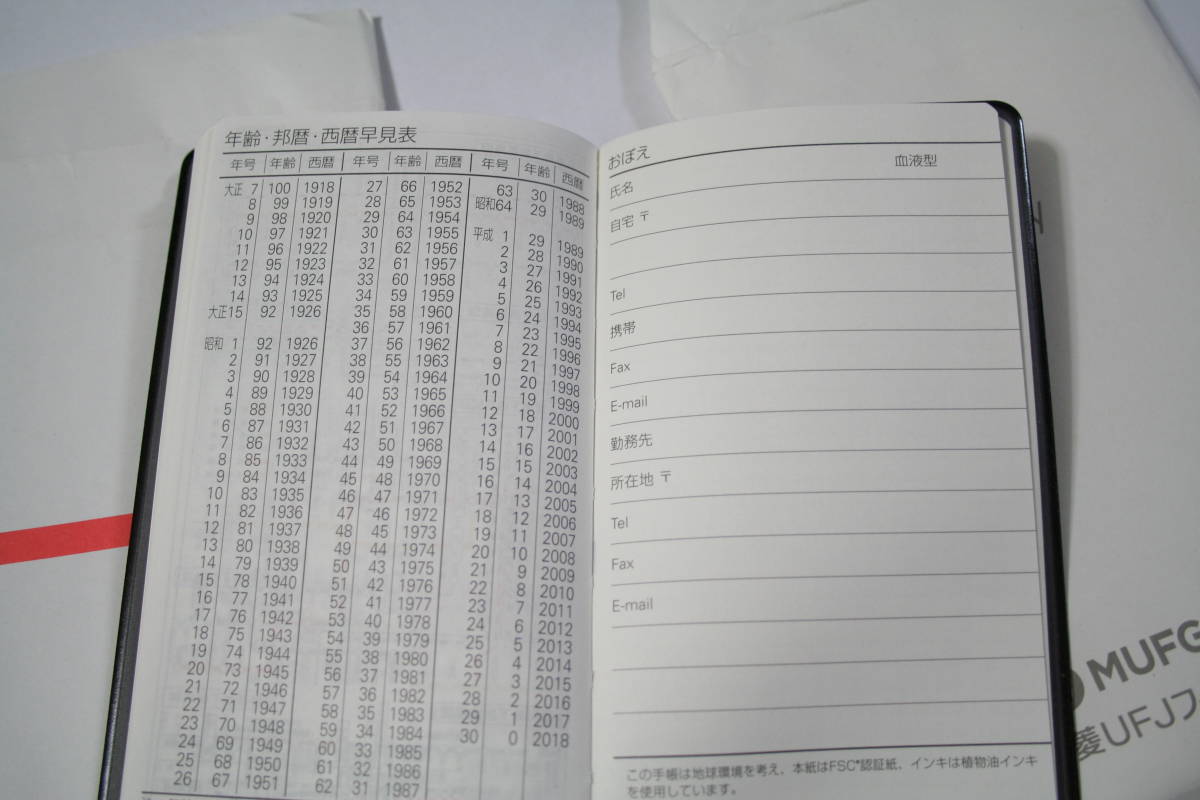 年齢・邦暦・西暦早見表
年号 年齢 西暦 年号 年齢 西暦 年号 年齢 西暦
大正 7 100 1918 27 66 1952 63 30 1988
8 99 1919 28 65 1953 昭和64 29 1989
9 98 1920 29 64 1954
10 97 1921 30 63 1955 平成 1 29 1989
11 96 1922 31 62 1956 2 28 1990
12 95 1923 32 61 1957 3 27 1991
13 94 1924 33 60 1958 4 26 1992
14 93 1925 34 59 1959 5 25 1993
大正15 92 1926 35 58 1960 6 24 1994
36 57 1961 7 23 1995
昭和 1 92 1926 37 56 1962 8 22 1996
2 91 1927 38 55 1963 9 21 1997
3 90 1928 39 54 1964 10 20 1998
4 89 1929 40 53 1965 11 19 1999
5 88 1930 41 52 1966 12 18 2000
6 87 1931 42 51 1967 13 17 2001
7 86 1932 43 50 1968 14 16 2002
8 85 1933 44 49 1969 15 15 2003
9 84 1934 45 48 1970 16 14 2004
10 83 1935 46 47 1971 17 13 2005
11 82 1936 47 46 1972 18 12 2006
12 81 1937 48 45 1973 19 11 2007
13 80 1938 49 44 1974 20 10 2008
14 79 1939 50 43 1975 21 9 2009
15 78 1940 51 42 1976 22 8 2010
16 77 1941 52 41 1977 23 7 2011
17 76 1942 53 40 1978 24 6 2012
18 75 1943 54 39 1979 25 5 2013
19 74 1944 55 38 1980 26 4 2014
20 73 1945 56 37 1981 27 3 2015
21 72 1946 57 36 1982 28 2 2016
22 71 1947 58 35 1983 29 1 2017
23 70 1948 59 34 1984 30 0 2018
24 69 1949 60 33 1985
25 68 1950 61 32 1986
26 67 1951 62 31 1987
おぼえ
氏名 血液型
自宅 〒
Tel
携帯
Fax
E-mail
勤務先
所在地 〒
Tel
Fax
E-mail
この手帳は地球環境を考え、本紙はFSC®認証紙、インキは植物油インキ
を使用しています。
MUFG
菱UFJフ